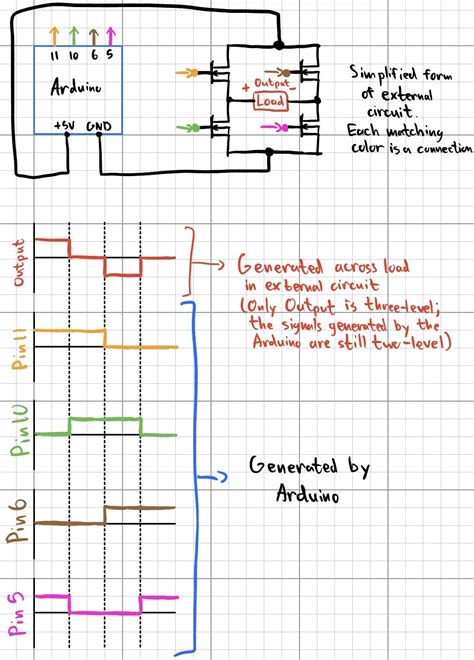 11 10 6 5
Arduino
+5V GND
+ Output -
Load
Simplified form
of external
circuit.
Each matching
color is a connection
Output
Generated across load
in external circuit
(Only Output is three-level;
the signals generated by the
Arduino are still two-level)
Pin 11
Pin 10
Generated by
Arduino
Pin 6
Pin 5